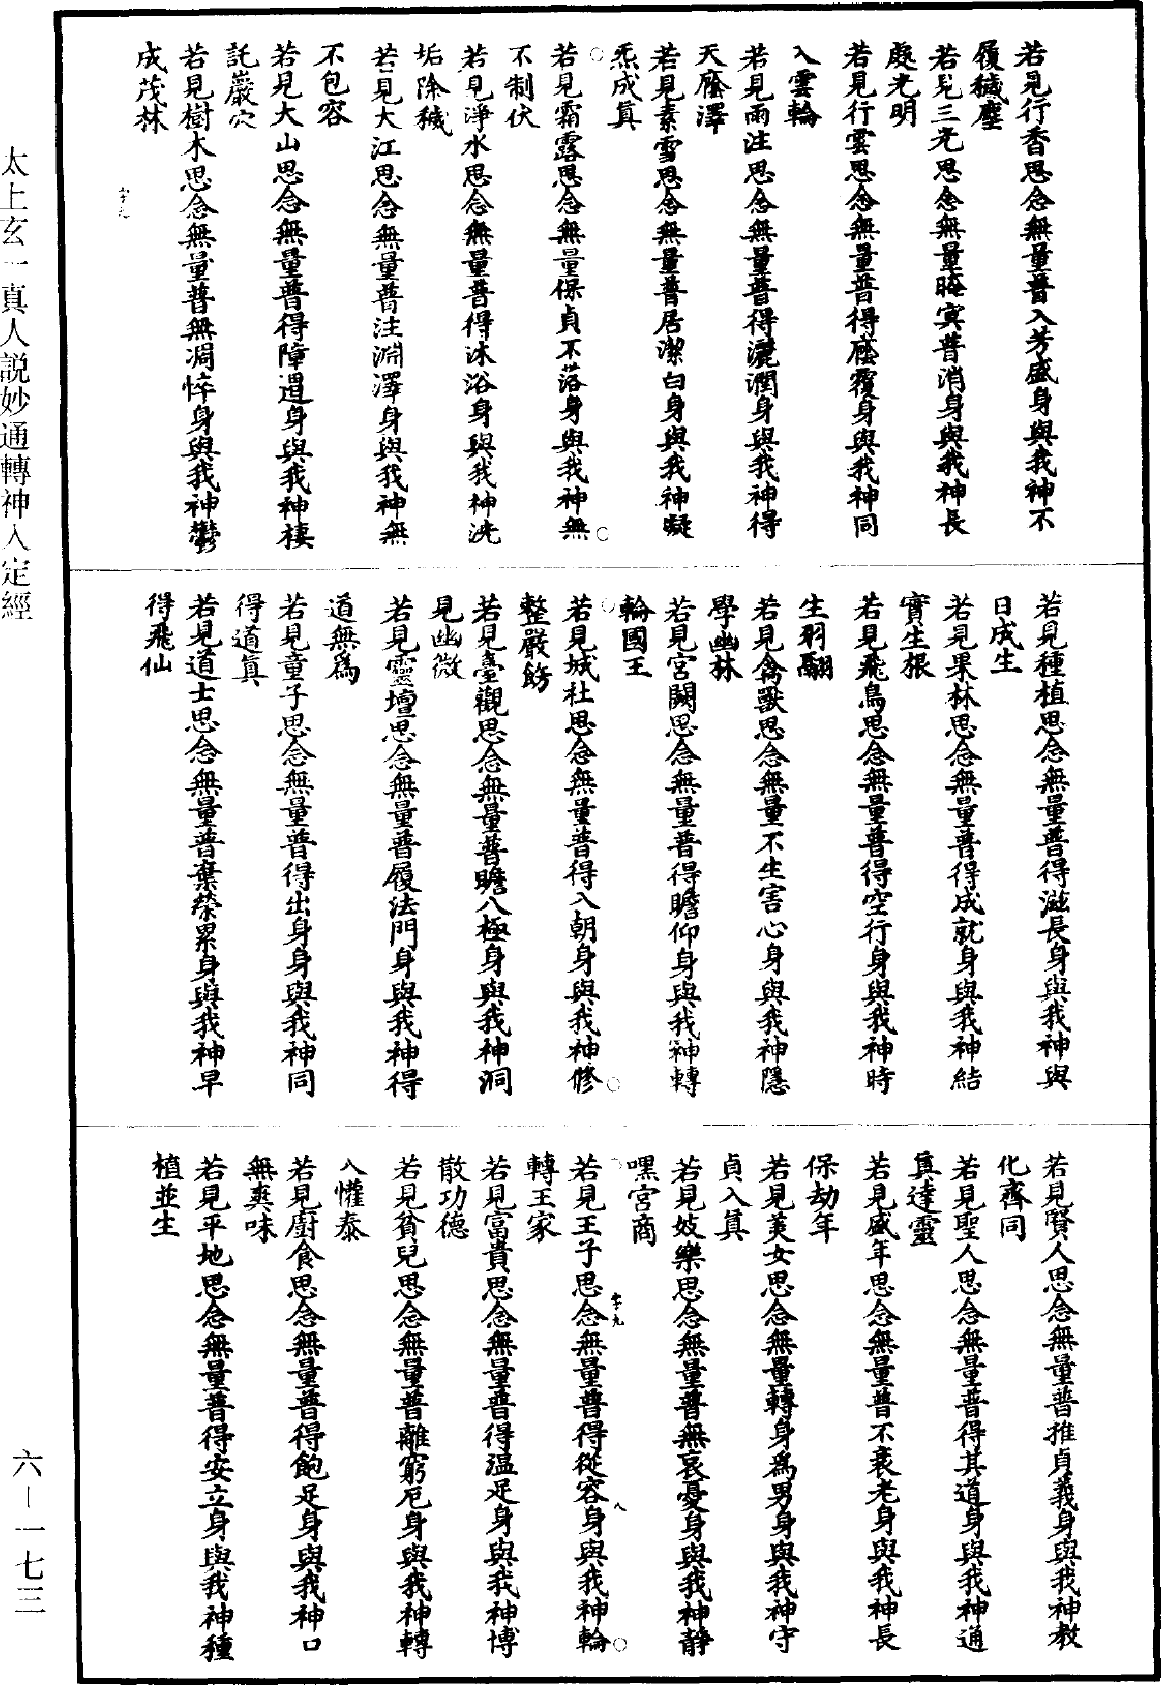 若見行香思念無量普入芳盛身與我神不
履穢塵
若見三光思念無量晻寞普消身與我神長
處光明
若見行雲思念無量普得廕覆身與我神同
入雲輪
若見雨注思念無量普得灑潤身與我神得
天廕澤
若見素雪思念無量普居潔白身與我神凝
炁成真
若見霜露思念無量保貞不落身與我神無
不制伏
若見淨水思念無量普得沐浴身與我神洗
垢除穢
若見大江思念無量普注淵澤身與我神無
不包容
若見大山思念無量普得障遏身與我神棲
託巖穴
若見樹木思念無量普無凋悴身與我神鬱
成茂林
若見種植思念無量普得滋長身與我神與
日成生
若見果林思念無量普得成就身與我神結
實生根
若見飛鳥思念無量普得空行身與我神時
生羽翮
若見禽獸思念無量不生害心身與我神隱
學幽林
若見宮闕思念無量普得瞻仰身與我神轉
輪國王
若見城社思念無量普得入朝身與我神修
整嚴飭
若見臺觀思念無量普瞻八極身與我神洞
見幽微
若見靈壇思念無量普履法門身與我神得
道無為
若見童子思念無量普得出身身與我神同
得道真
若見道士思念無量普棄榮累身與我神早
得飛仙
若見賢人思念無量普推貞義身與我神教
化齊同
若見聖人思念無量普得其道身與我神通
真達靈
若見盛年思念無量普不衰老身與我神長
保劫年
若見美女思念無量轉身為男身與我神守
貞入真
若見妓樂思念無量普無哀憂身與我神靜
嘿宮商
若見王子思念無量普得從容身與我神輪
轉王家
若見富貴思念無量普得溫足身與我神博
散功德
若見貧兒思念無量普離窮厄身與我神轉
入懽泰
若見廚食思念無量普得飽足身與我神口
無爽味
若見平地思念無量普得安立身與我神種
植並生
太上玄一真人説妙通轉神入定經
六－一七三